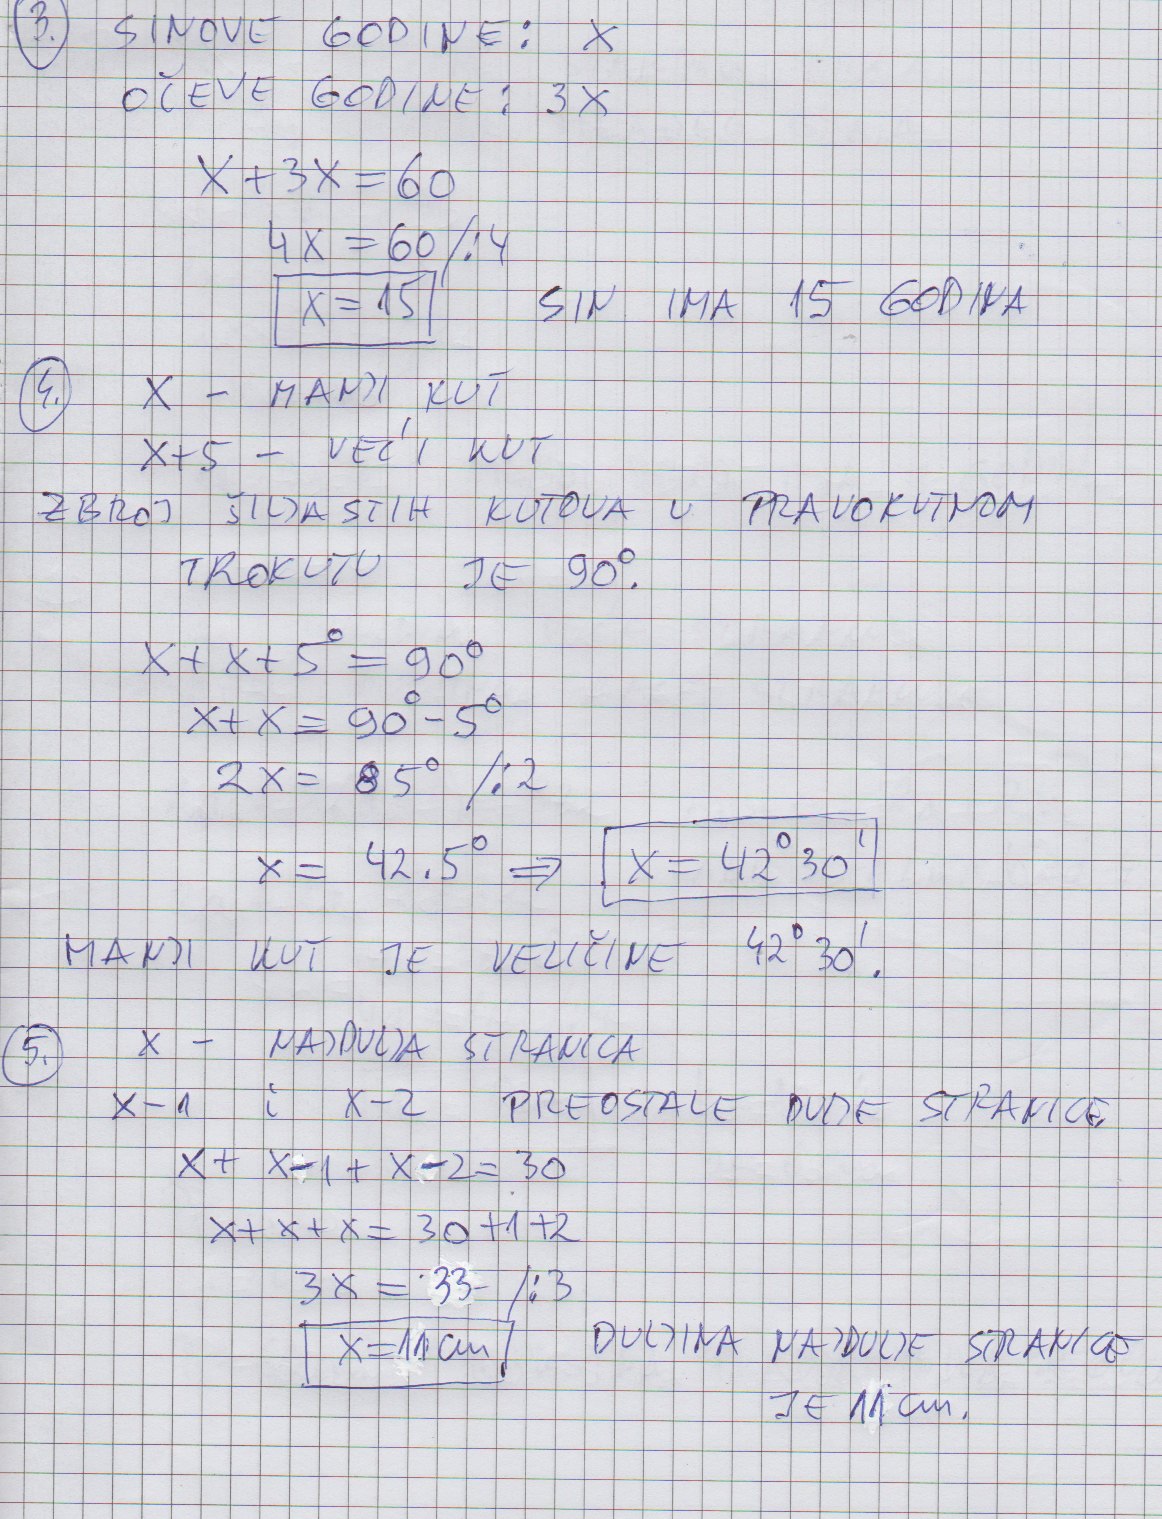 3. SINOVE GODINE: X
OČEVE GODINE: 3X
X+3X=60
4X=60/:4
X=15 SIN IMA 15 GODINA
4. X - MANJI KUT
X+5 - VEĆI KUT
ZBROJ ŠILJASTIH KUTOVA U PRAVOKUTNOM
TROKUTU JE 90°.
X+X+5°=90°
X+X=90°-5°
2X=85° /:2
X=42.5° ⇒ X=42°30'
MANJI KUT JE VELIČINE 42°30'.
5. X - NAJDULJA STRANICA
X-1 i X-2 PREOSTALE DULJE STRANICE
X+X-1+X-2=30
X+X+X=30+1+2
3X=33 /:3
X=11cm DULJINA NAJDULJE STRANICE
JE 11cm.